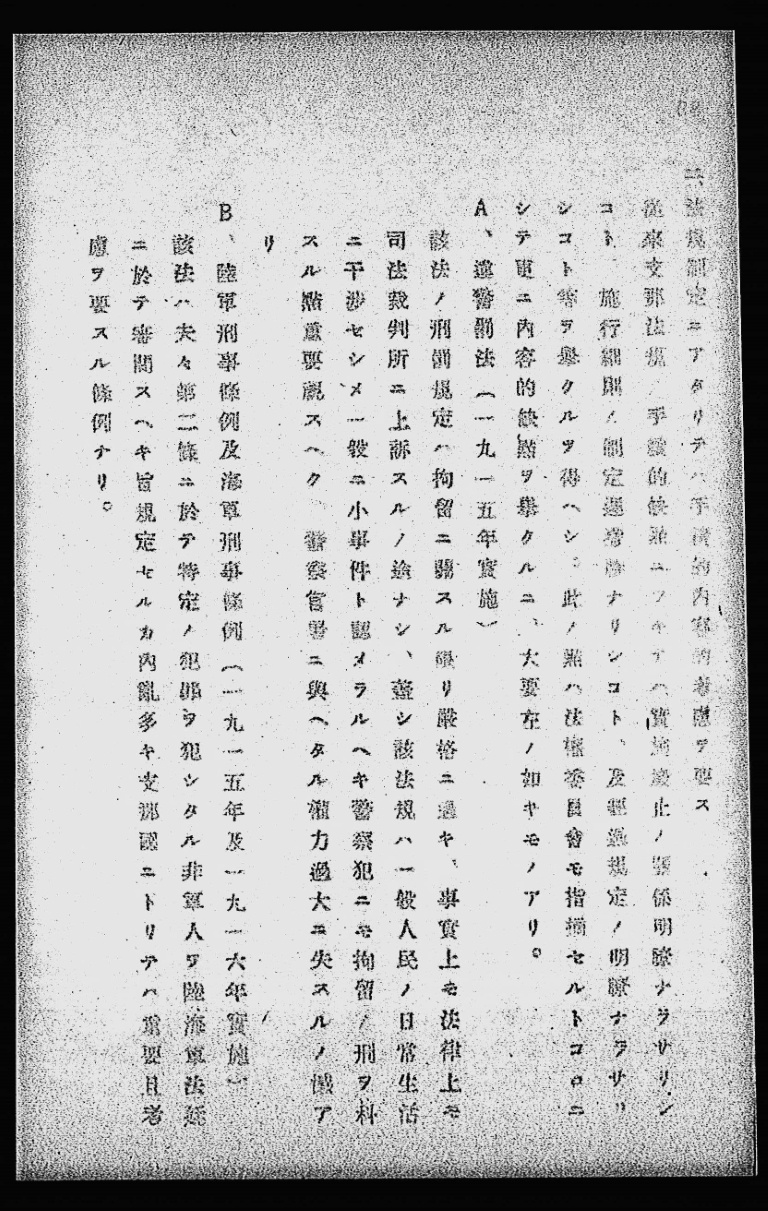 二、法規制定ニアタリテハ手續的内容的考慮ヲ要ス
從來支那法規ノ手續的缺點ニツキテハ實施廢止ノ關係明瞭ナラサリシ
コト、施行細則ノ制定遲滯勝ナリシコト、及經過規定ノ明瞭ナラサリ
シコト等ヲ擧クルヲ得ヘシ。此ノ點ハ法權委員會モ指摘セルトコロニ
シテ更ニ内容的缺點ヲ擧クルニ、大要左ノ如キモノアリ。
A、違警罰法（一九一五年實施）
該法ノ刑罰規定ハ拘留ニ關スル限リ嚴格ニ過キ、事實上モ法律上モ
司法裁判所ニ上訴スルノ途ナシ、蓋シ該法規ハ一般人民ノ日常生活
ニ干渉セシメ一般ニ小事件ト認メラルヘキ警察犯ニモ拘留ノ刑ヲ科
スル點重要視スヘク、警察官署ニ與ヘタル權力過大ニ失スルノ憾ア
リ
B、陸軍刑事條例及海軍刑事條例（一九一五年及一九一六年實施）
該法ハ夫々第二條ニ於テ特定ノ犯罪ヲ犯シタル非軍人ヲ陸海軍法廷
ニ於テ審問スヘキ旨規定セルカ内亂多キ支那國ニトリテハ重要且考
慮ヲ要スル條例ナリ。